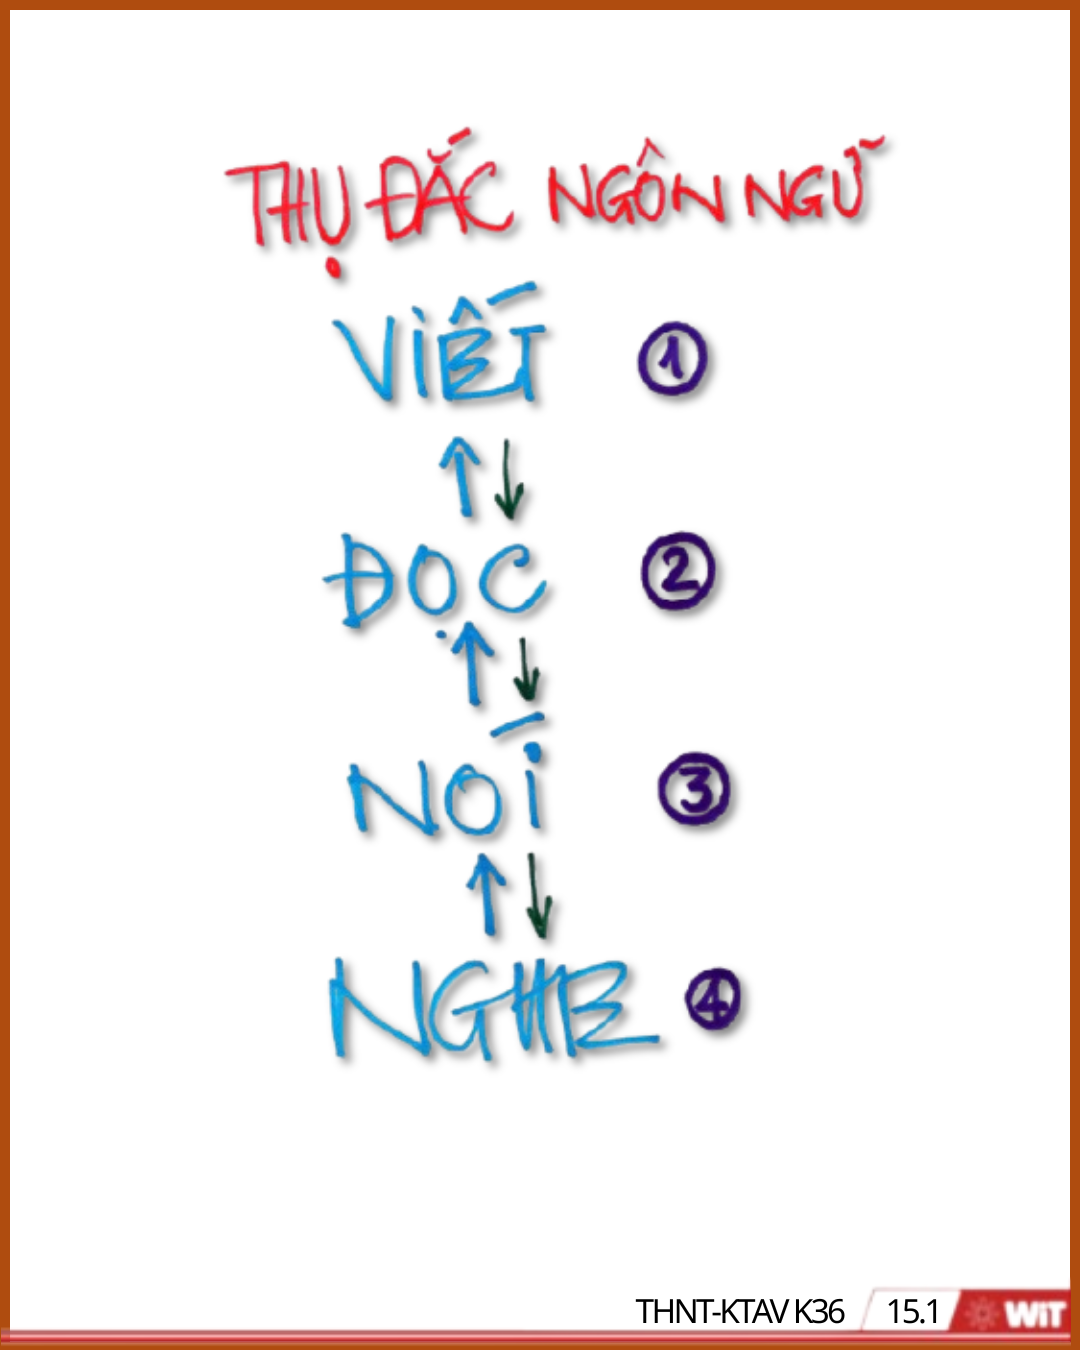 THỤ ĐẮC NGÔN NGỮ
VIẾT ①
ĐỌC ②
NÓI ③
NGHE ④
THNT-KTAV K36 15.1 WiT